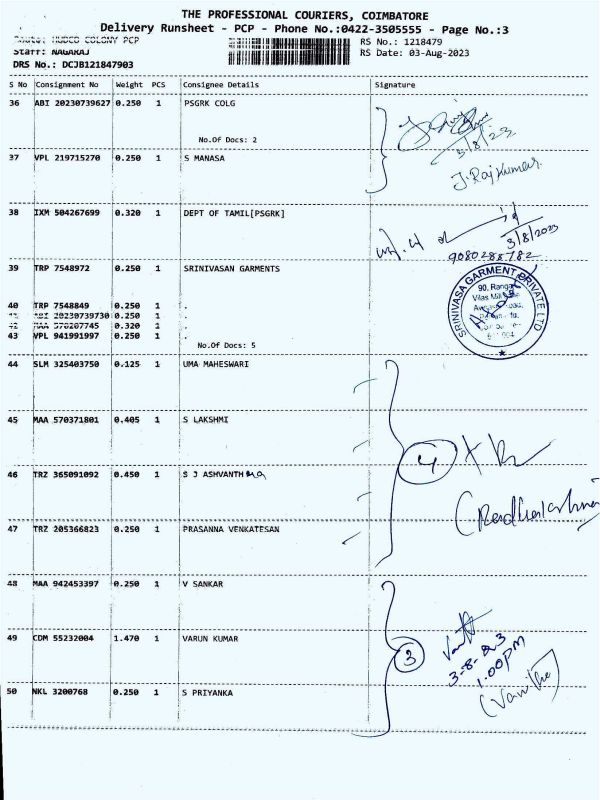 THE PROFESSIONAL COURIERS, COIMBATORE
Delivery Runsheet - PCP - Phone No.:0422-3505555 - Page No.:3
HUDCO COLONY PCP
RS No.: 1218479
Staff: NAGARAJ
RS Date: 03-Aug-2023
DRS No.: DCJB121847903
S No Consignment No Weight PCS Consignee Details Signature
36 ABI 20230739627 0.250 1 PSGRK COLG
No.Of Docs: 2
3/8/23
37 VPL 219715270 0.250 1 S MANASA
J. Rajkumar
38 IXM 504267699 0.320 1 DEPT OF TAMIL[PSGRK]
3/8/2023
9080288782
39 TRP 7548972 0.250 1 SRINIVASAN GARMENTS
SRINIVASA GARMENT PRIVATE LTD
90, Ranga
Vilas Mill
40 TRP 7548849 0.250 1 .
41 ABI 20230739730 0.250 1 .
42 MAA 570207745 0.320 1 .
43 VPL 941991997 0.250 1 .
No.Of Docs: 5
44 SLM 325403750 0.125 1 UMA MAHESWARI
45 MAA 570371801 0.405 1 S LAKSHMI
4
46 TRZ 365091092 0.450 1 S J ASHVANTH
(Radhakrishnan
47 TRZ 205366823 0.250 1 PRASANNA VENKATESAN
48 MAA 942453397 0.250 1 V SANKAR
49 CDM 55232004 1.470 1 VARUN KUMAR
3
3-8-23
1.00PM
50 NKL 3200768 0.250 1 S PRIYANKA